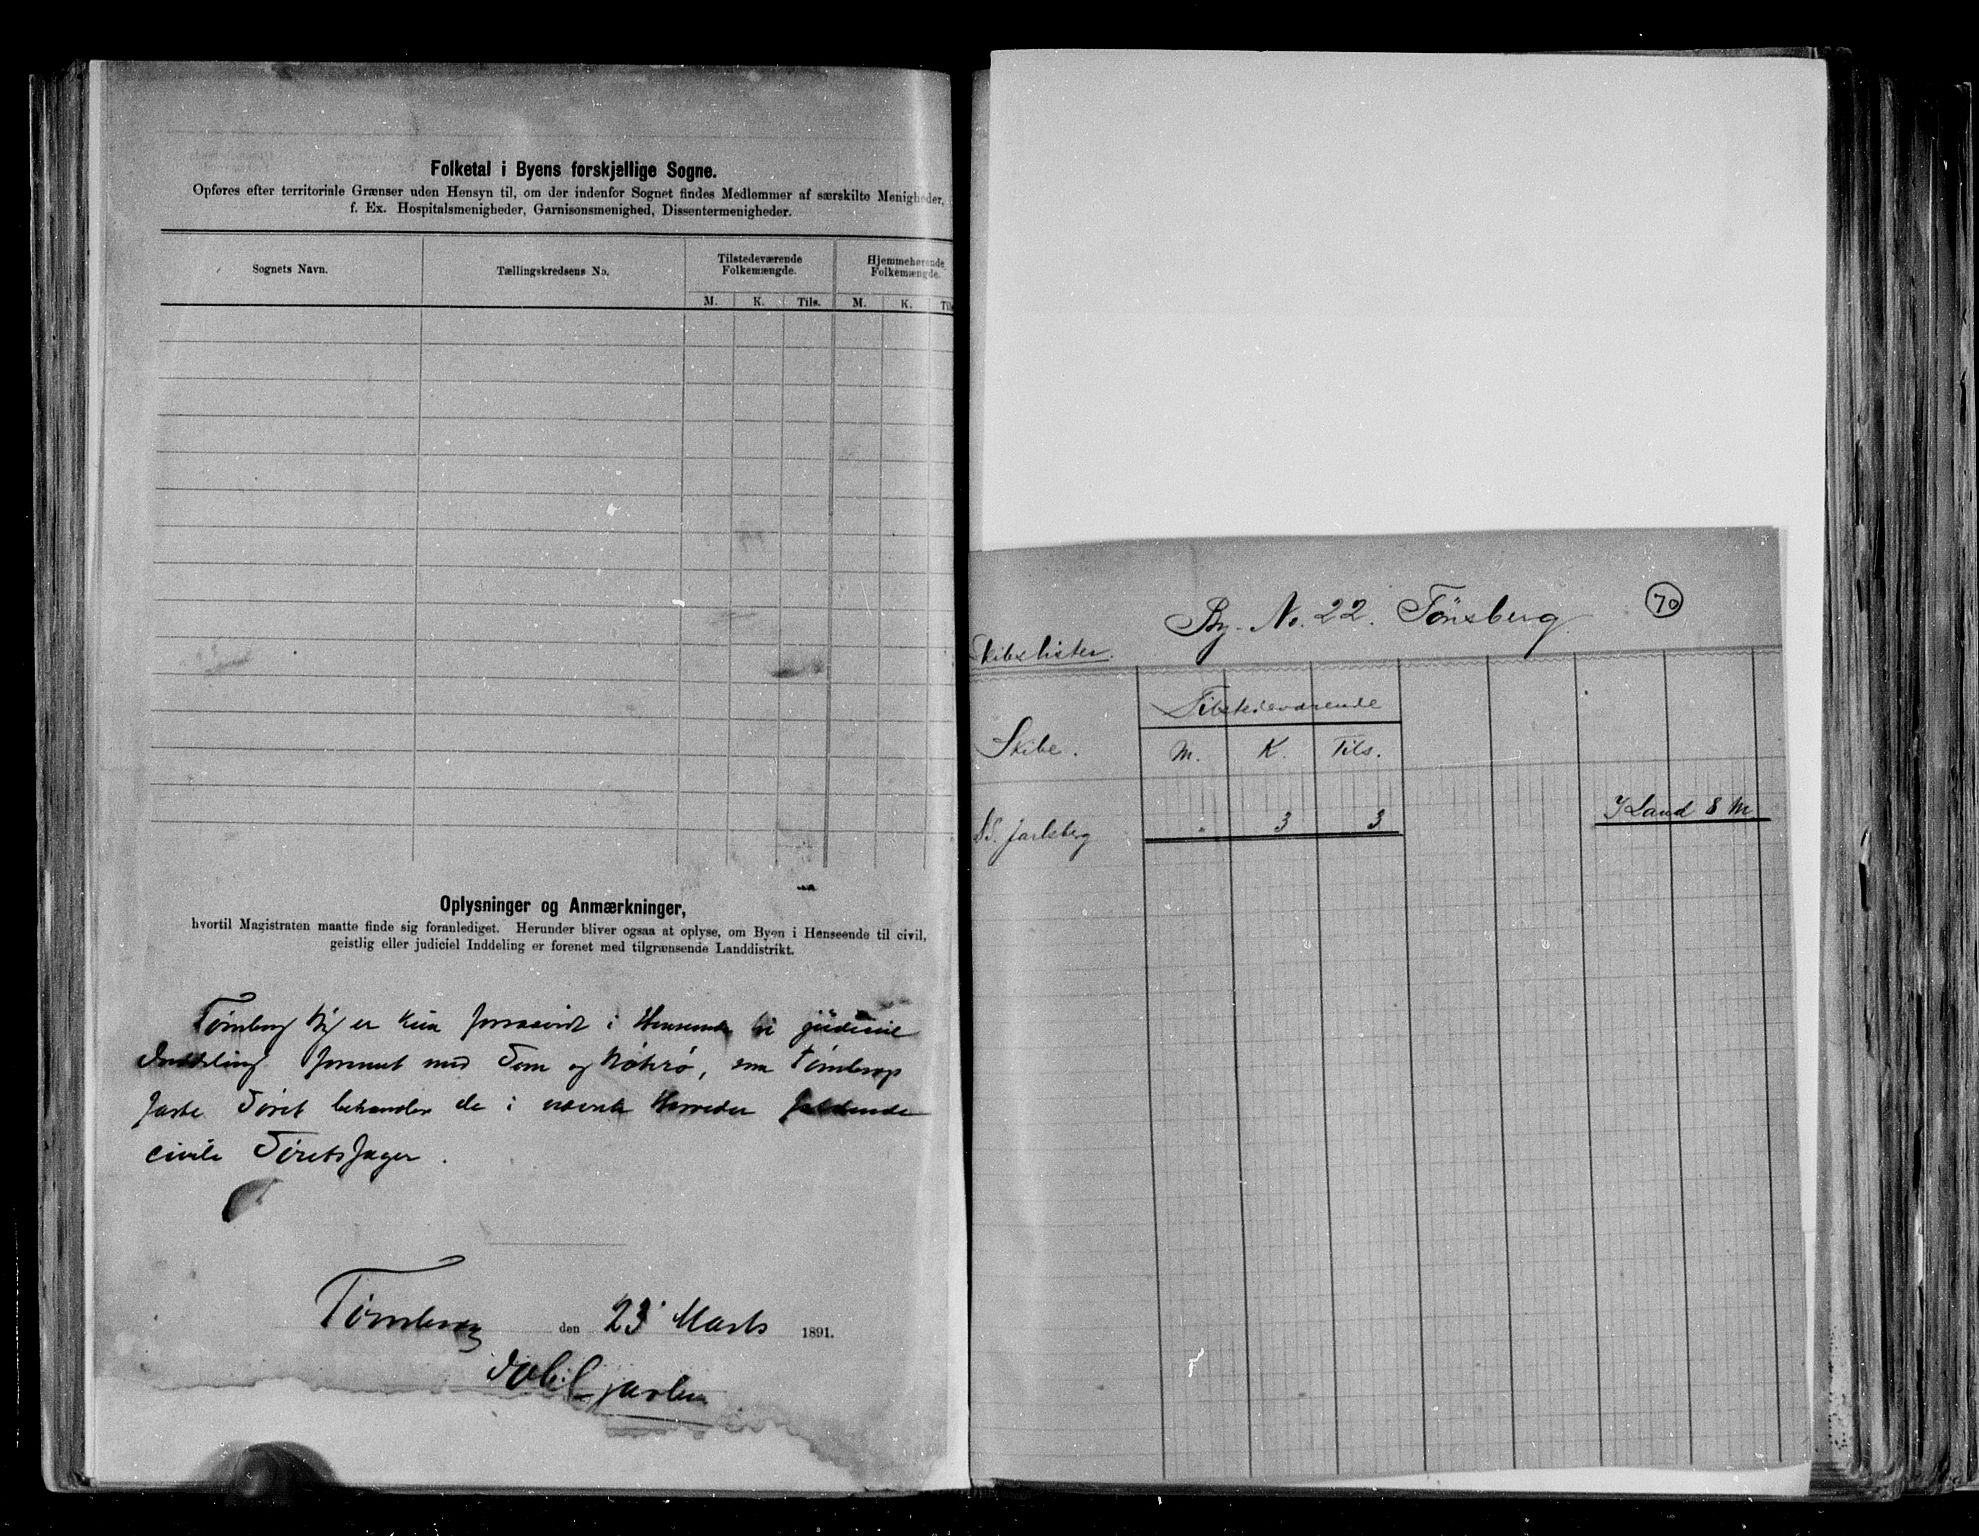 Folketal i Byens forskjellige Sogne.
Opføres efter territoriale Grænser uden Hensyn til, om der indenfor Sognet findes Medlemmer af særskilte Menigheder,
f. Ex. Hospitalsmenigheder, Garnisonsmenighed, Dissentermenigheder.
Sognets Navn.
Tællingskredsens No.
Tilstedeværende Folkemængde.
Hjemmehørende Folkemængde.
M. K. Tils. M. K. Tils
Oplysninger og Anmærkninger,
hvortil Magistraten maatte finde sig foranlediget. Herunder bliver ogsaa at oplyse, om Byen i Henseende til civil,
geistlig eller judiciel Inddeling er forenet med tilgrænsende Landdistrikt.
Tønsberg By er kun forsaavidt i Henseende til judiciel
Inddeling forenet med Sem og Nøtterø, som Tønsbergs
faste Foret behandler de i nævnte Herreder faldende
civile
Tønsberg den 23 Marts 1891.
By No. 22. Tönsberg. 70
Skibslister.
Skibe.
Tilstedeværende
M. K. Tils.
DS. Jarlsberg " 3 3 I Land 8 M.